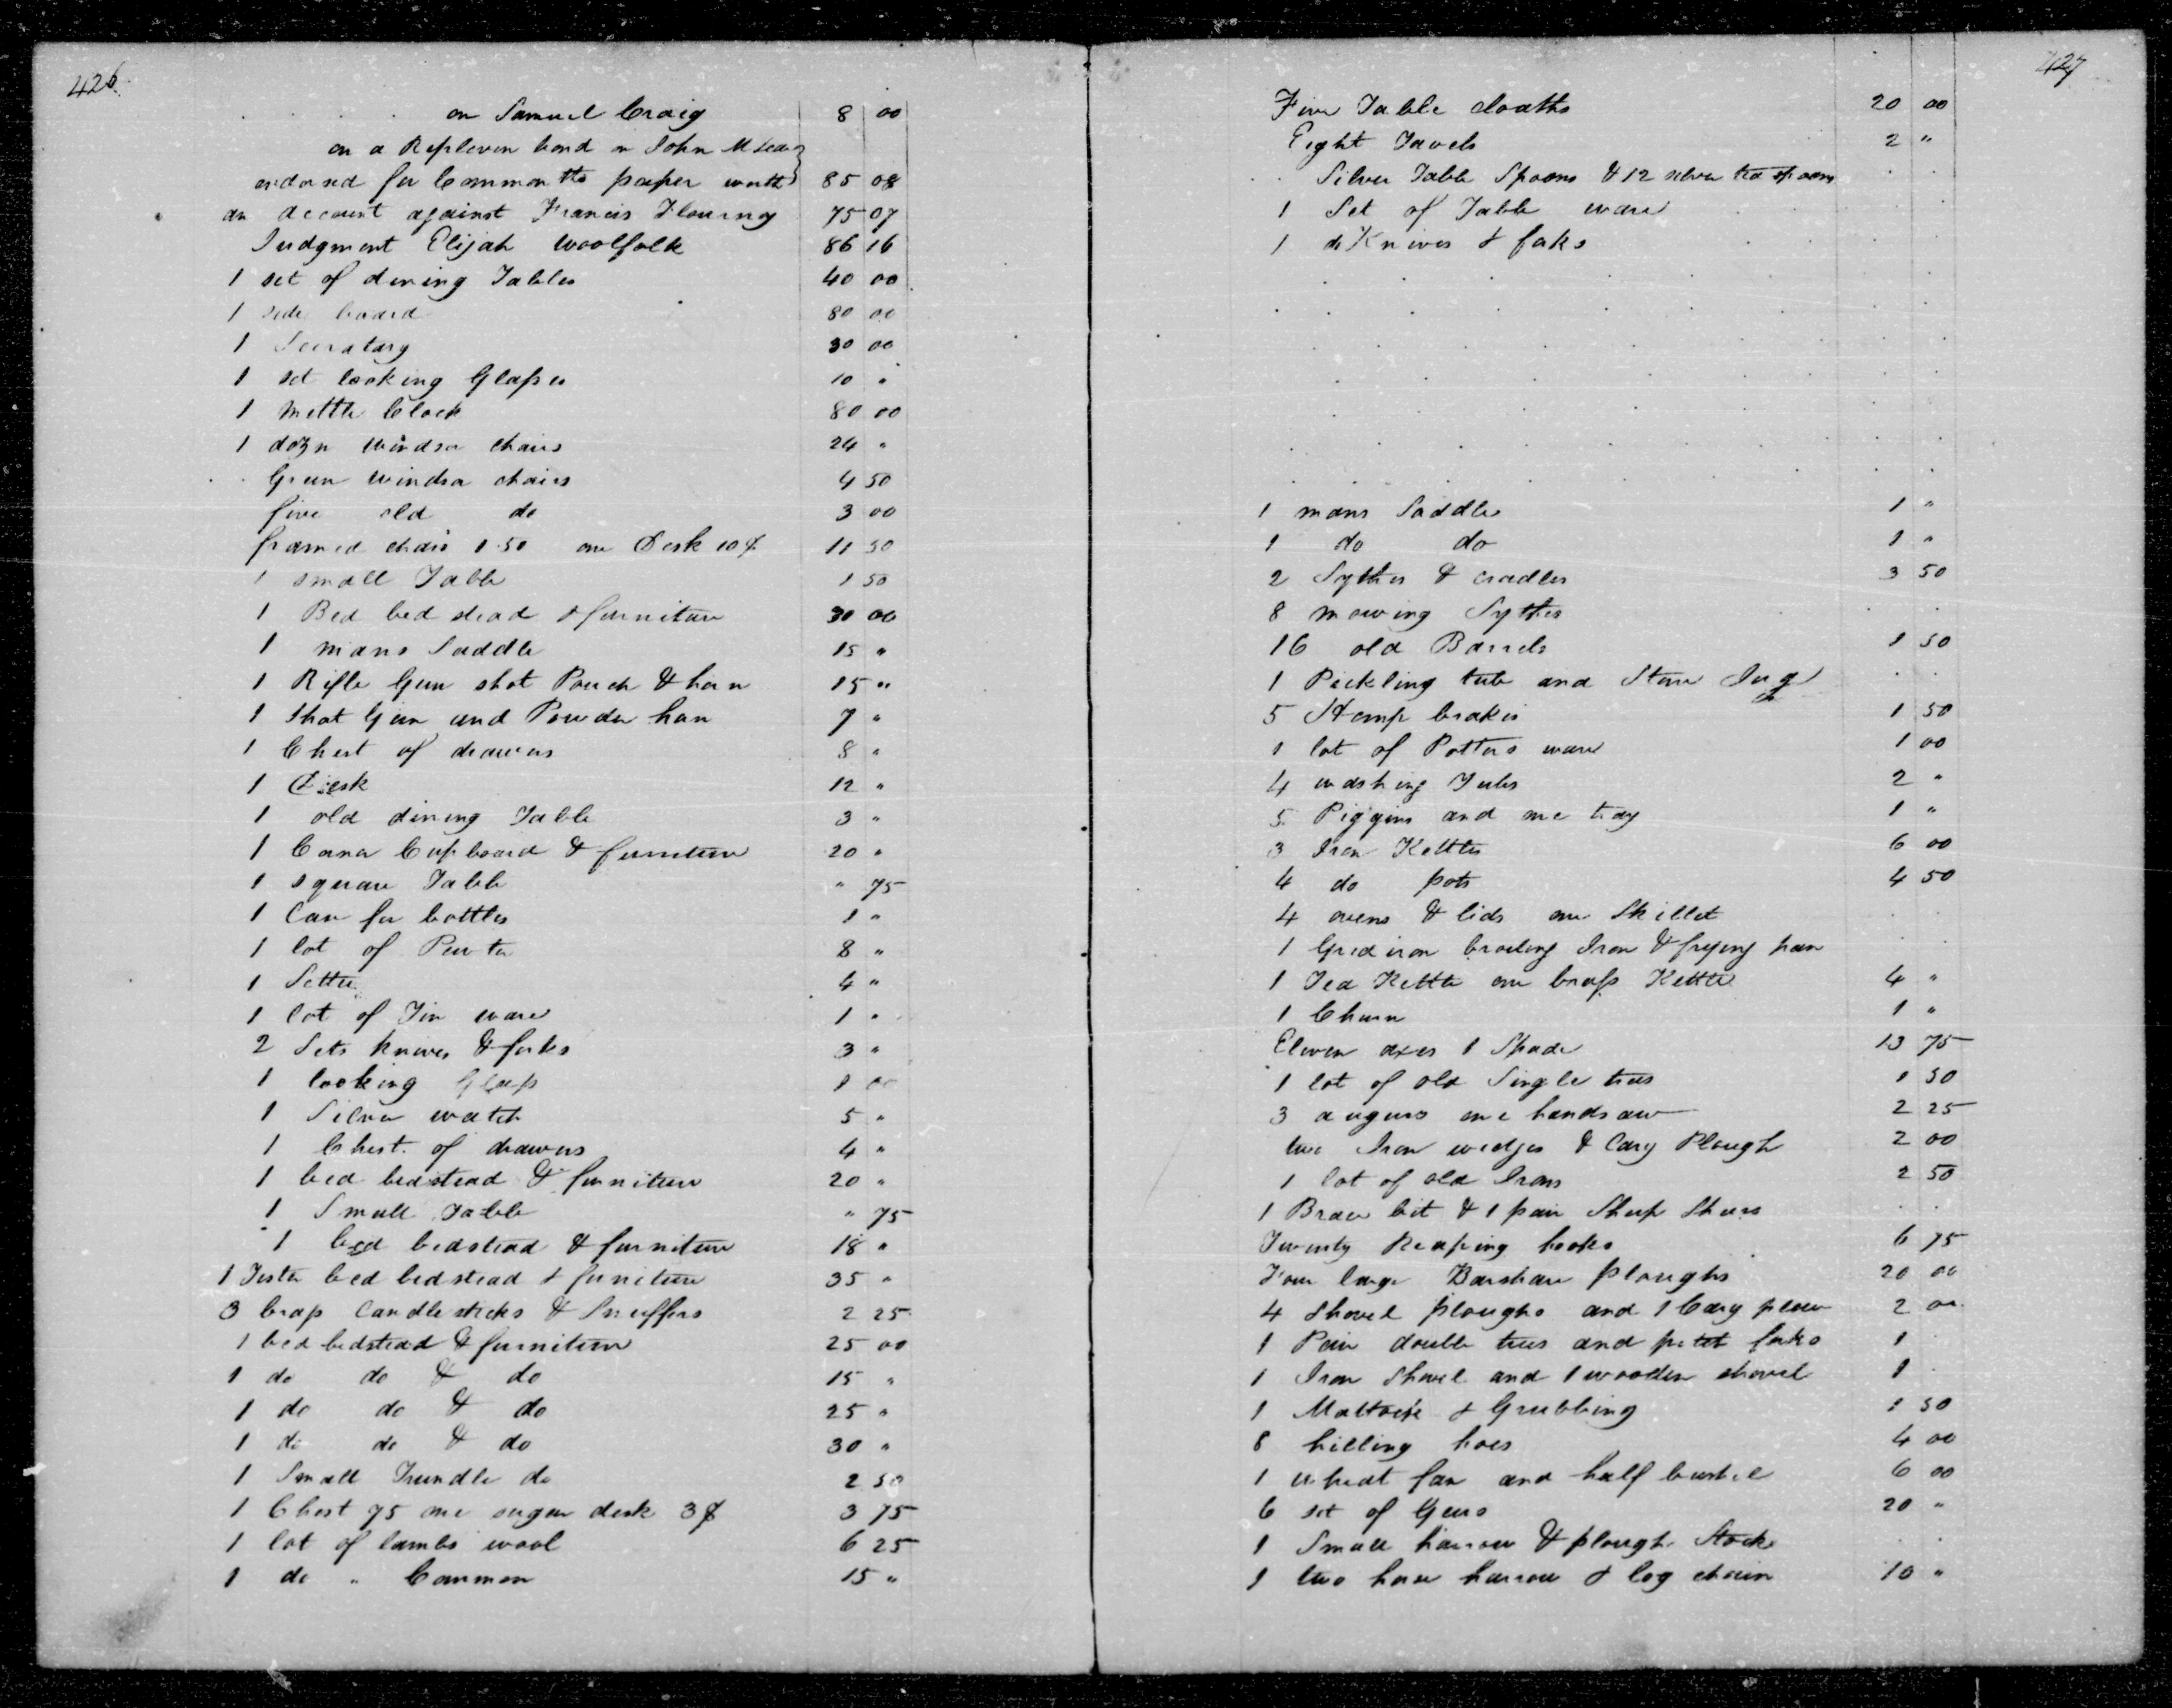 426
. . . . on Samuel Craig 8 00
on a Replevin bond on John M
endorsed for Common tts paper worth 85 08
an account against Francis Flournoy 75 07
Judgment Elijah Woolfolk 86 16
1 set of dining Tables 40 00
1 side board 80 00
1 Secratary 30 00
1 set looking Glasses 10 "
1 mettle Clock 80 00
1 dozn windsor chairs 24 "
. . Green windsor chairs 4 50
five old do 3 00
framed chairs 1.50 one Desk 10$ 11 50
1 small Table 1 50
1 Bed bed stead & furniture 30 00
1 mans Saddle 15 "
1 Rifle Gun shot Pouch & horn 15 "
1 Shot Gun and Powder horn 7 "
1 Chest of drawers 8 "
1 Desk 12 "
1 old dining Table 3 "
1 Corner Cupboard & furniture 20 "
1 square Table " 75
1 Case for bottles 1 "
1 lot of Pewter 8 "
1 Settee 4 "
1 lot of Tin ware 1 "
2 Sets knives & forks 3 "
1 looking Glass 1 00
1 Silver watch 5 "
1 Chest of drawers 4 "
1 bed bedstead & furniture 20 "
1 Small Table " 75
1 bed bedstead & furniture 18 "
1 Tester bed bedstead & furniture 35 "
3 brass Candlesticks & Snuffers 2 25
1 bed bedstead & furniture 25 00
1 do do & do 15 "
1 do do & do 25 "
1 do do & do 30 "
1 Small Trundle do 2 50
1 Chest 75 one sugar desk 3$ 3 75
1 lot of lambs wool 6 25
1 do " Common 15 "
427
Five Table cloaths 20 00
Eight Towels 2 "
. . Silver Table Spoons & 12 silver tea spoons . .
1 Set of Table ware . .
1 do Knives & forks . .
1 mans Saddle 1 "
1 do do 1 "
2 Sythes & cradles 3 50
8 mowing Sythes . .
16 old Barrels 1 50
1 Pickling tub and Stone Jug . .
5 Hemp brakes 1 50
1 lot of Potters ware 1 00
4 washing Tubs 2 "
5 Piggins and one tray 1 "
3 Iron Kettles 6 00
4 do pots 4 50
4 ovens & lids one Skillet . .
1 Gridiron broiling Iron & frying pan . .
1 Tea Kettle one brass Kettle 4 "
1 Churn 1 "
Eleven axes 1 Spade 13 75
1 lot of old Single trees 1 50
3 augurs one handsaw 2 25
two Iron wedges & Cary Plough 2 00
1 lot of old Irons 2 50
1 Brace bit & 1 pair Sheep Shears . .
Twenty Reaping hooks 6 75
Four large Barshare ploughs 20 00
4 Shovel ploughs and 1 Cary plow 2 00
1 Pair double trees and forks 1 .
1 Iron Shovel and 1 wooden shovel 1 .
1 Mattock & Grubbing 1 50
8 hilling hoes 4 00
1 wheat fan and half bushel 6 00
6 set of Gears 20 "
1 Small harrow & plough Stock . .
1 two horse harrow & log chain 10 "